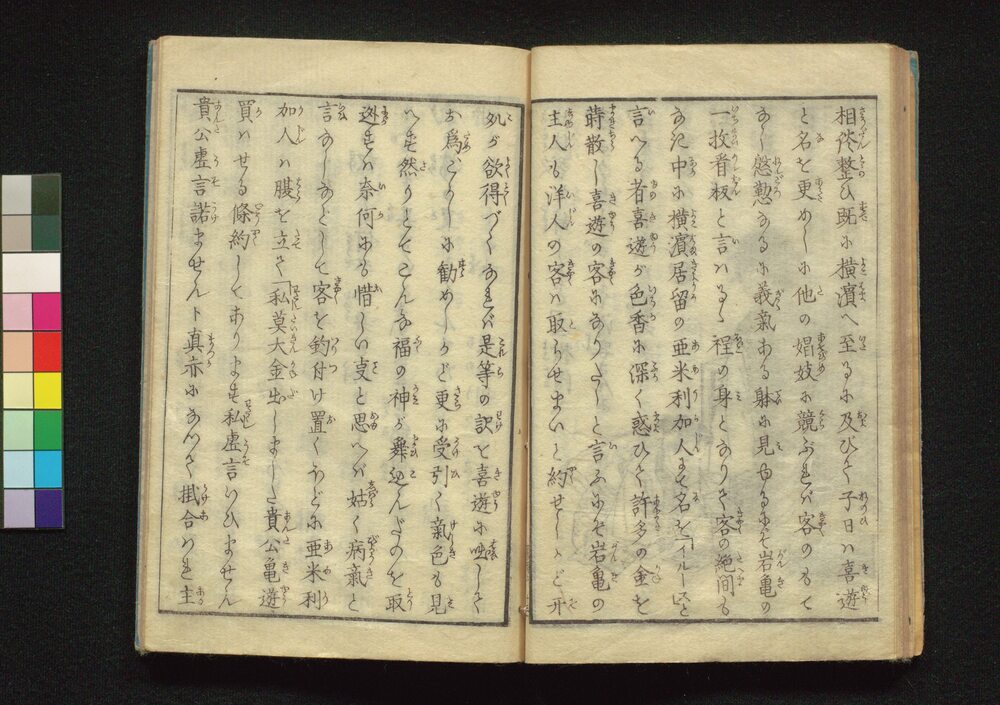 相談整ひ既に横濱へ至るに及びて子日ハ喜遊
と名を更めしに他の娼妓に競ぶれバ客のもて
なし慇懃なるに義氣ある躰に見ゆるにぞ岩亀の
一枚看板と言ハるゝ程の身となりき客の絶間も
なき中に横濱居留の亜米利加人にて名をイルースと
言へる者喜遊が色香に深く惑ひて許多の金を
蒔散し喜遊の客になりたしと言ふにぞ岩亀の
主人も洋人の客ハ取らせまいと約せしゝど开
処が欲得づくなれバ是等の訳を喜遊に咄して
お為ごかしに勸めしかど更に受引く氣色も見
へず然りとてこんな福の神が舞込んだのを取
迯すハ奈何にも惜しい事と思へバ姑く病氣と
言なしなどして客を釣付け置くほどに亜米利
加人ハ腹を立て「私莫大金出しました貴公亀遊
買ハせる條約してあります私虚言いひません
貴公虚言諾ませんト真赤になつて掛合ハれ主